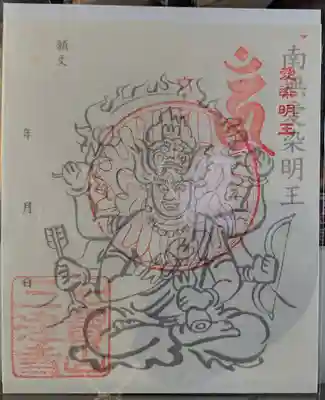 南無愛染明王
愛染明王
願文
年 月 日